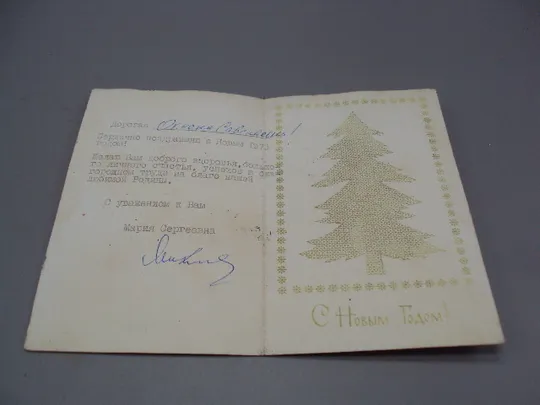 Дорогая
Сердечно поздравляю с Новым
годом!
Желаю Вам доброго здоровья, большо
го личного счастья, успехов в
труде на благо нашей
любимой Родины.
С уважением к Вам
Мария Сергеевна
С Новым Годом!